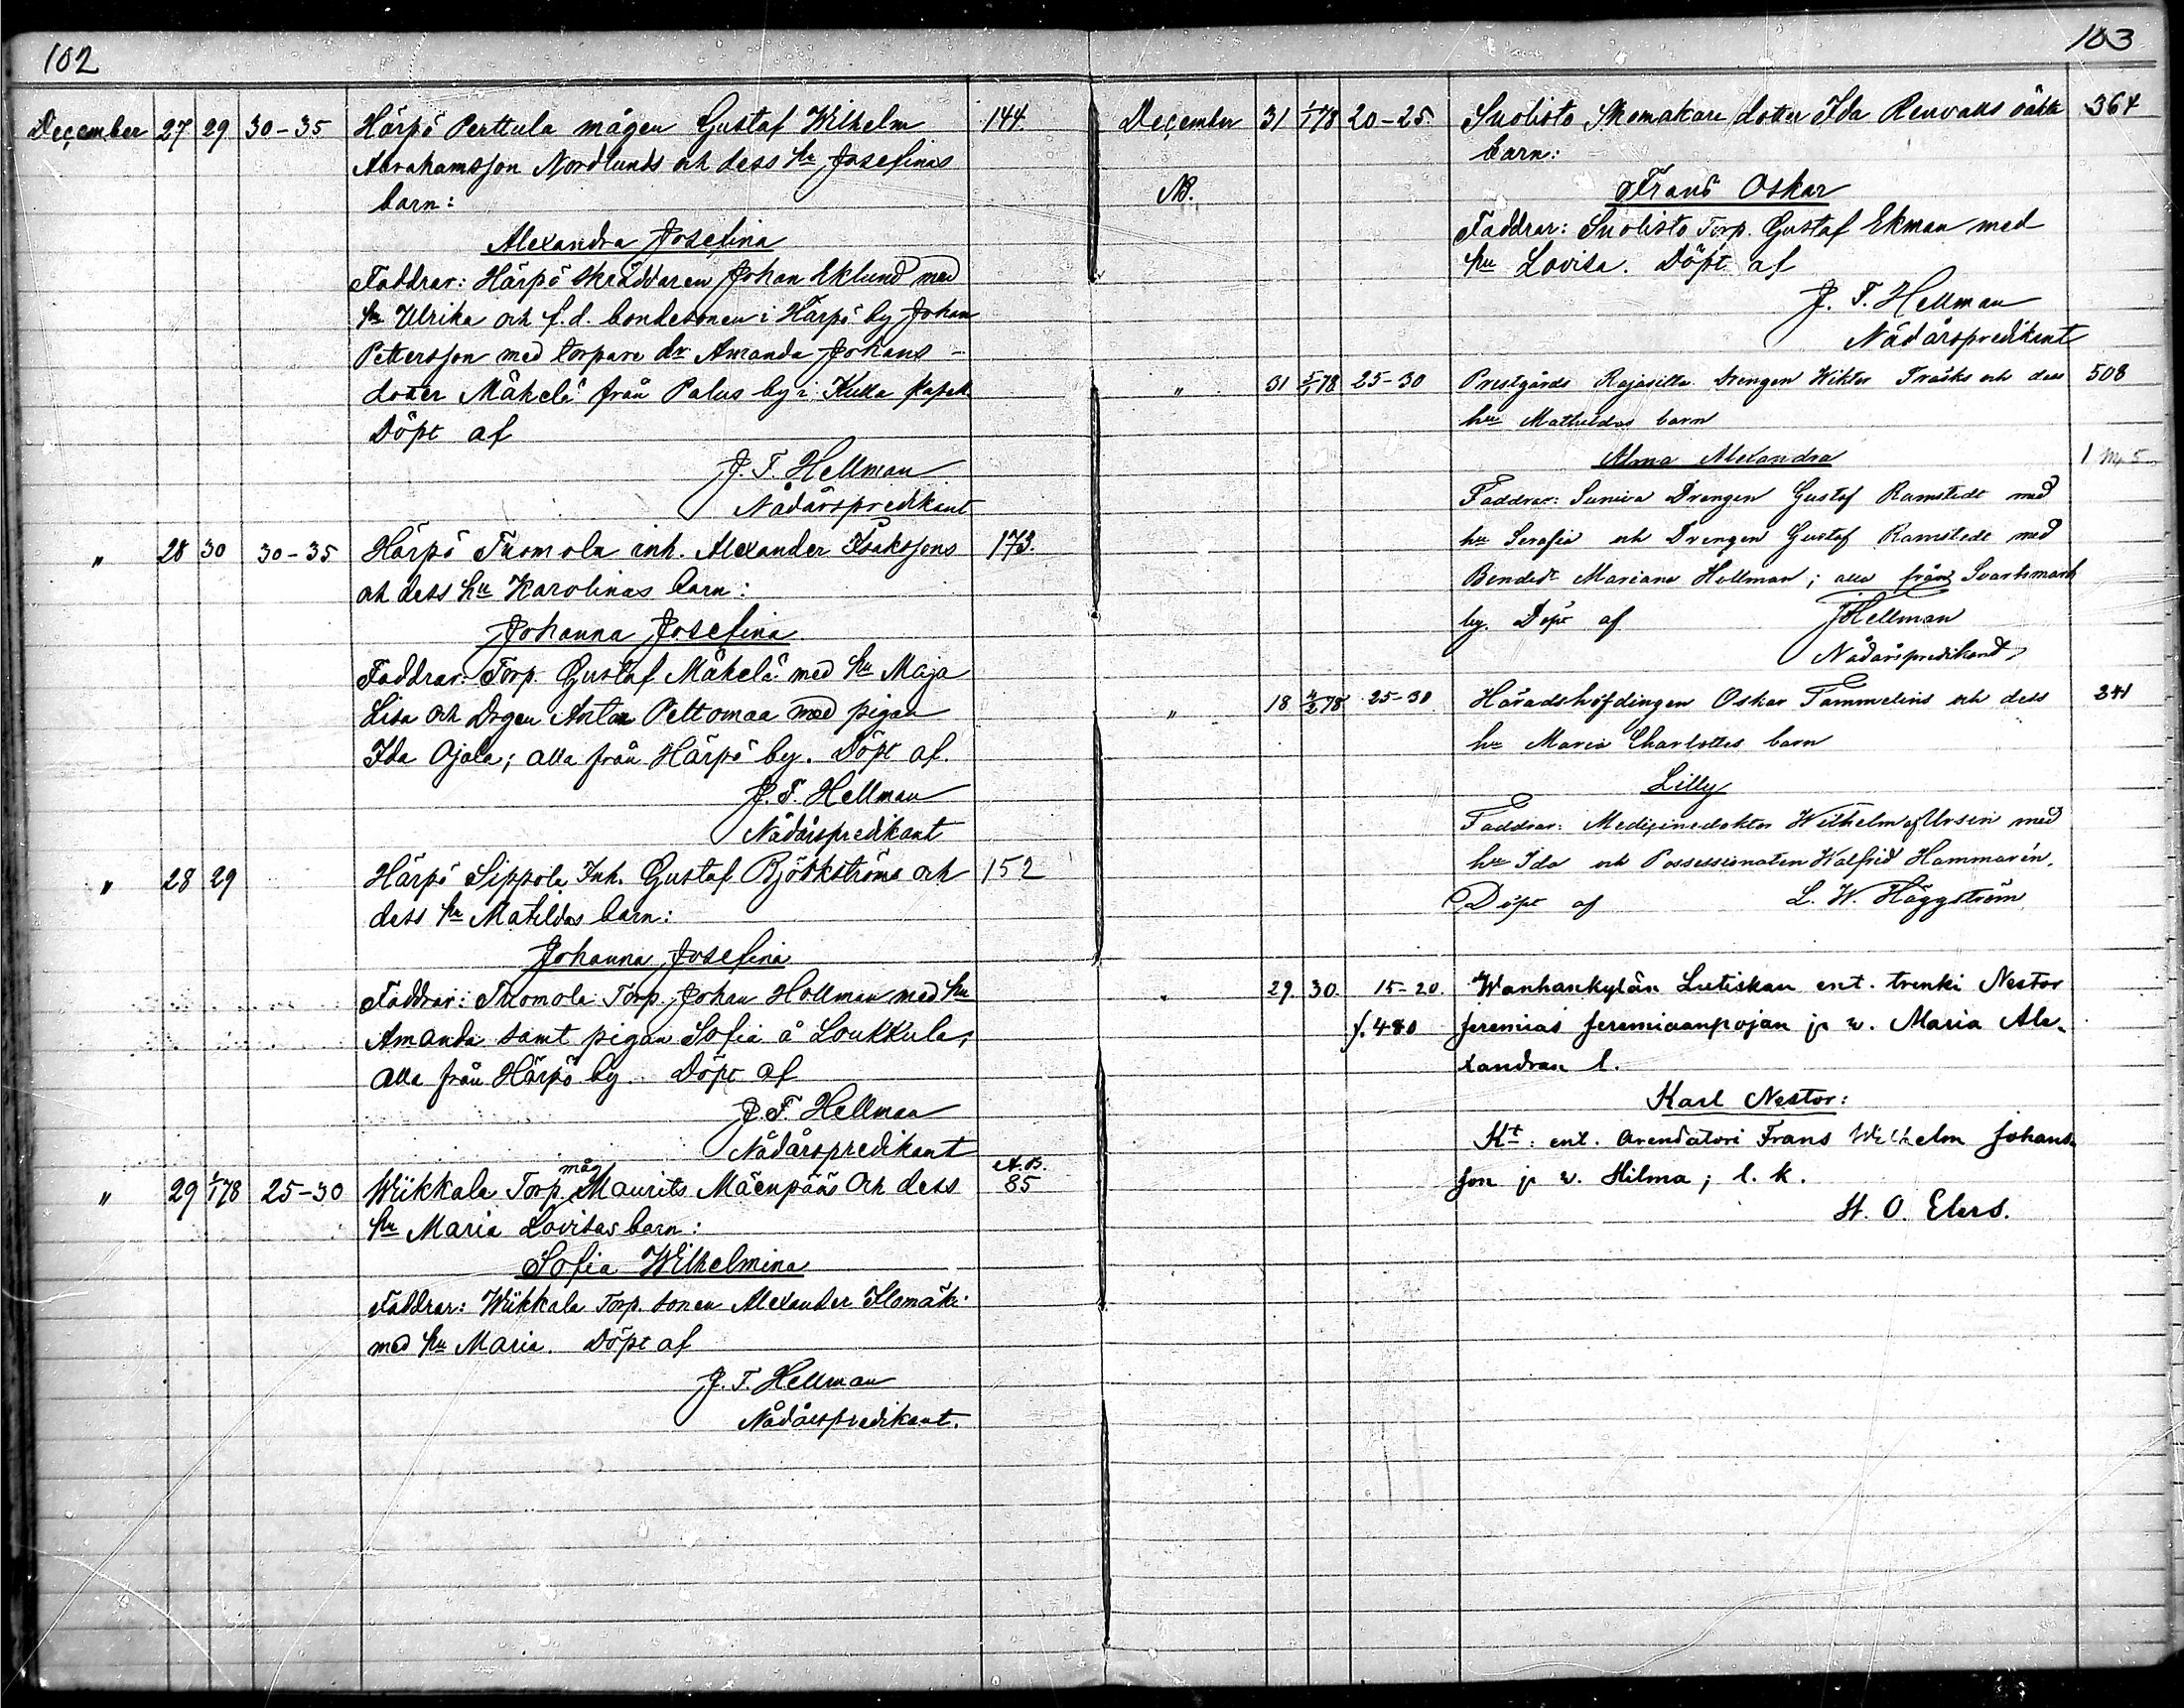 102
December 27 29 30-35 Härpö Perttula mågen Gustaf Wilhelm 144.
Abrahamsson Nordlunds och dess hu Josefinas
barn:
Alexandra Josefina
Faddrar: Härpö skräddaren Johan Eklund med
hu Ulrika och f.d. bondesonen i Härpö by Johan
Pettersson med torpare dr Amanda Johans-
dotter Mäkelä från Palus by i Kulla kapell.
Döpt af
J. F. Hellman
Nådårspredikant
" 28 30 30-35 Härpö Tuomola inh. Alexander Isakssons 173.
och dess hu Karolinas barn:
Johanna Josefina
Faddrar: Torp. Gustaf Mäkelä med hu Maja
Lisa och drgen Anton Peltomaa med pigan
Ida Ojala; alla från Härpö by. Döpt af.
J. F. Hellman
Nådårspredikant
" 28 29 Härpö Sippola Inh. Gustaf Björkströms och 152
dess hu Matildas barn:
Johanna Josefina
Faddrar: Tuomola Torp. Johan Hollman med hu
Amanda samt pigan Sofia å Loukkula;
alla från Härpö by. Döpt af
J. F. Hellman
Nådårspredikant
" 29 1/1 78 25-30 Wiikkala Torp. måg Maurits Mäenpääs och dess 85
hu Maria Lovisas barn:
Sofia Wilhelmina
Faddrar: Wiikkala Torp. sonen Alexander Ilomäki
med hu Maria. Döpt af
J. F. Hellman
Nådårspredikant.
103
December 31 1/1 78 20-25. Suolisto Skomakare dotter Ida Renvalls oäkta 364
barn:
NB. Frans Oskar
Faddrar: Suolisto Torp. Gustaf Ekman med
hu Lovisa. Döpt af
J. F. Hellman
Nådårspredikant
" 31 5/1 78 25-30 Prestgårds Rajasilta Drengen Wiktor Träsks och dess 508
hu Mathildas barn
Alma Alexandra
Faddrar: Drengen Gustaf Ramstedt med
hu Serafia och Drengen Gustaf Ramstedt med
Bondedr Mariana Hollman; alla från Svartsmark
by. Döpt af JHellman
Nådårspredikant
" 18 4/2 78 25-30 Häradshöfdingen Oskar Tammelins och dess 241
hu Maria Charlottes barn
Lilly
Faddrar: Medicinedoktor Wilhelm af Ursin med
hu Ida och Possessionaten Walfrid Hammarén.
Döpt af L. W. Häggström
" 29. 30. 15-20. Wanhankylän Lutiskan ent. trenki Nestor
s. 480 Jeremias Jeremiaanpojan ja w. Maria Ale-
xandran l.
Karl Nestor:
Kt: ent. arendatori Frans Wilhelm Johans-
son ja w. Hilma; l. k.
H. O. Elers.